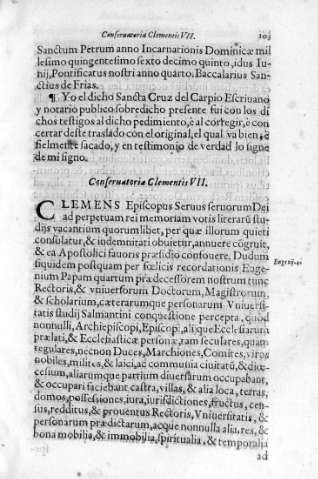 Conseruatoria Clementis VII. 103
Sanctum Petrum anno Incarnationis Dominicæ mil
lesimo quingentesimo sexto decimo quinto, idus Iu-
nij, Pontificatus nostri anno quarto. Baccalarius San-
ctius de Frias.
¶ Yo el dicho Sancta Cruz del Carpio Escriuano
y notario publico sobredicho presente fui con los di
chos testigos al dicho pedimiento, è al corregir, è con
certar deste traslado con el original, el qual va bien, è
fielmente sacado, y en testimonio de verdad lo signe
de mi signo.
Conseruatoria Clementis VII.
CLEMENS Episcopus Seruus seruorum Dei
ad perpetuam rei memoriam votis literarũ stu-
dijs vacantium quorumlibet, per quæ illorum quieti
consulatur, & indemnitati obuietur, annuere cõgruit,
& ea Apostolici fauoris præsidio confouere. Dudum
siquidem postquam per fœlicis recordationis Euge-
nium Papam quartum prædecessorem nostrum tunc
Rectoris, & vniuersorum Doctorum, Magistrorum,
& scholarium, cæterarumque personarum Vniuersi-
tatis studij Salmantini conquestione percepta, quod
nonnulli, Archiepiscopi, Episcopi, alijque Ecclesiarum
prælati, & Ecclesiasticæ personæ, tam seculares, quam
regulares, necnon Duces, Marchiones, Comites, viros
nobiles, milites, & laici, ac communia ciuitatũ, & diœ-
cesium, aliarumque partium diuersarum occupabant,
& occupari faciebant castra, villas, & alia loca, terras,
domos, possessiones, iura, iurisdictiones, fructus, cen-
sus, redditus, & prouentus Rectoris, Vniuersitatis, &
personarum prædictarum, acque nonnulla alia, res, &
bona mobilia, & immobilia, spiritualia, & temporalia
ad